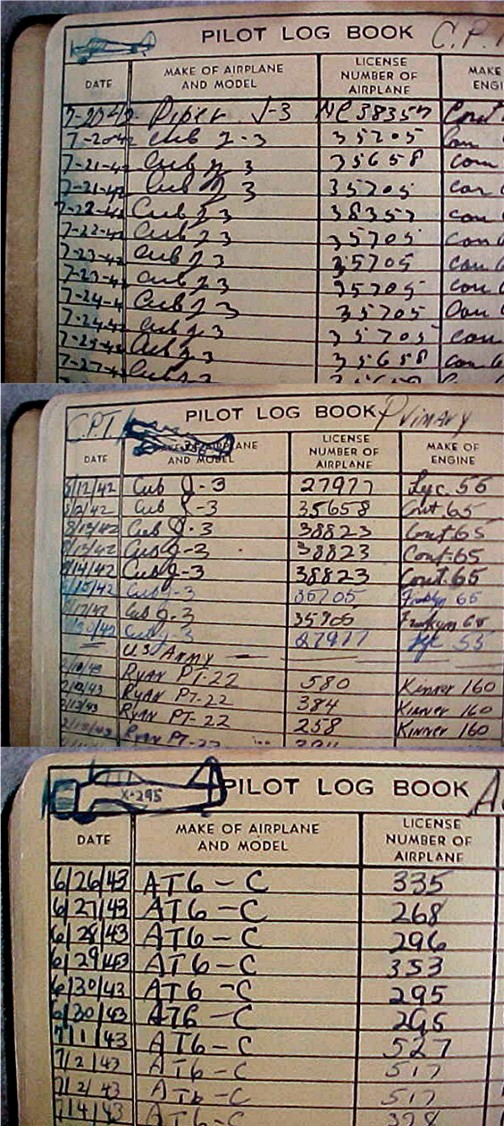 PILOT LOG BOOK C.P.T
DATE MAKE OF AIRPLANE AND MODEL LICENSE NUMBER OF AIRPLANE MAKE ENGI
7-20-42 Piper J-3 NC 38357 Cont
7-20-42 Cub J-3 35705 Con
7-21-42 Cub J 3 35658 con
7-21-42 Cub J 3 35705 con
7-22-42 Cub J 3 38357 con
7-22-42 Cub J 3 35705 con
7-23-42 Cub J 3 35705 con
7-23-42 Cub J 3 35705 con
7-24-4 Cub J 3 35705 Con
7-24-42 Cub J-3 35705 con
7-25-42 Cub J-3 35658 con
7-27-42 Cub J-3
C.P.T. PILOT LOG BOOK Primary
DATE PLANE AND MODEL LICENSE NUMBER OF AIRPLANE MAKE OF ENGINE
8/12/42 Cub J-3 27977 Lyc. 55
8/2/42 Cub J-3 35658 Cont 65
8/13/42 Cub J-3 38823 Cont 65
8/13/42 Cub J-3 38823 Cont. 65
8/14/42 Cub J-3 38823 Cont. 65
8/15/42 Cub J-3 35705 Franklyn 65
8/17/42 Cub J-3 35705 Franklyn 65
8/20/42 Cub J-3 27977 Lyc 55
U.S. Army
2/10/43 Ryan PT-22 580 Kinner 160
2/12/43 Ryan PT-22 384 Kinner 160
2/13/43 Ryan PT-22 258 Kinner 160
2/15/43 Ryan PT-22
X-295 PILOT LOG BOOK A
DATE MAKE OF AIRPLANE AND MODEL LICENSE NUMBER OF AIRPLANE
6/26/43 AT6-C 335
6/27/43 AT6-C 268
6/28/43 AT6-C 296
6/29/43 AT6-C 353
6/30/43 AT6-C 295
6/30/43 AT6-C 295
7/1/43 AT6-C 527
7/2/43 AT6-C 517
7/2/43 AT6-C 517
7/4/43 AT6-C 398